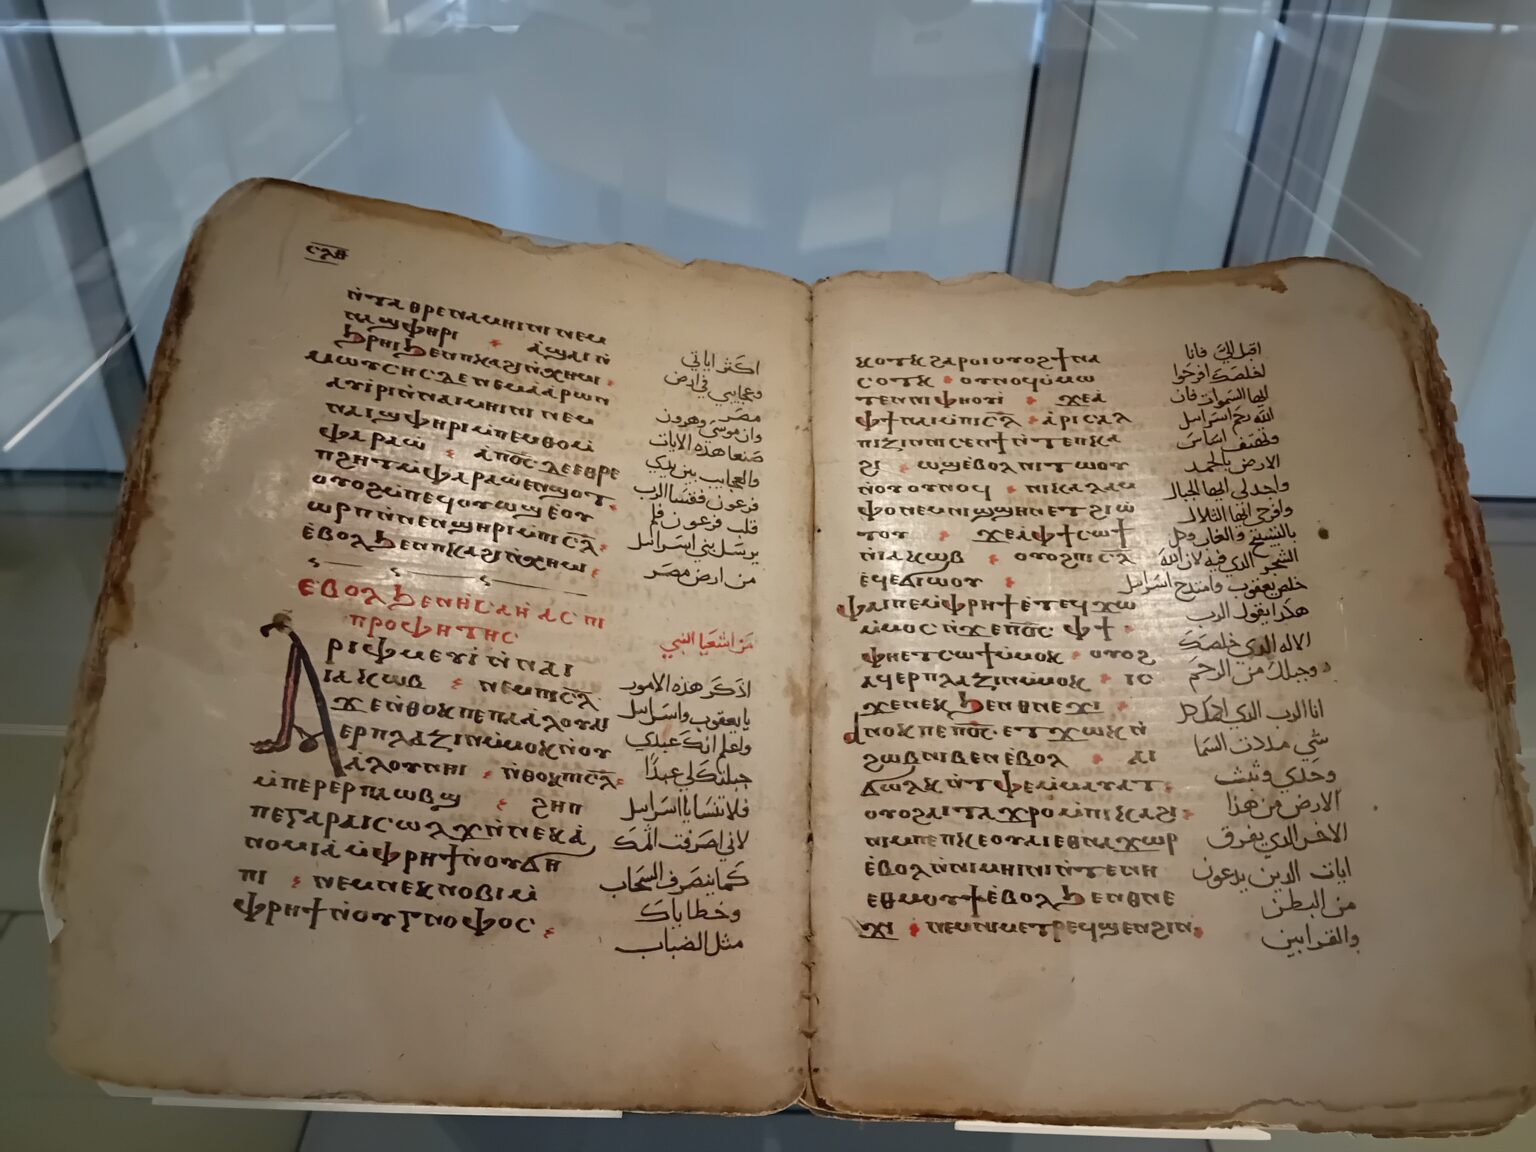 ⲥⲗⲏ
ⲛ̀ⲧⲁⲑⲣⲉⲛⲁⲙⲏⲓⲛⲓ ⲛⲉⲙ
ⲛⲁϣⲫⲏⲣⲓ ⲁ̀ϣⲁⲓ ⲛ̀
ϧⲣⲏⲓϧⲉⲛⲡⲕⲁϩⲓⲛ̀ⲭⲏⲙⲓ
ⲙⲱⲩⲥⲏⲥ ⲇⲉ ⲛⲉⲙⲁ̀ⲁⲣⲱⲛ
ⲁⲩⲓ̀ⲣⲓⲛ̀ⲛⲁⲓⲙⲏⲓⲛⲓ ⲛⲉⲙ
ⲛⲁⲓϣⲫⲏⲣⲓⲙ̀ⲡⲉⲙⲑⲟⲙ̀
ⲫⲁⲣⲁⲱ̀ ⲁ̀ⲡⲟ̅ⲥ̅ ⲇⲉⲉⲑⲣⲉ
ⲡϩⲏⲧⲙ̀ⲫⲁⲣⲁⲱ̀ⲉⲛϣⲟⲧ
ⲟⲩⲟϩⲙ̀ⲡⲉϥⲟⲩⲱϣⲉⲟⲩ
ⲱⲣⲡⲛ̀ⲛⲉⲛϣⲏⲣⲓⲙ̀ⲡⲓⲥ̅ⲗ̅
ⲉ̀ⲃⲟⲗϧⲉⲛⲡⲕⲁϩⲓⲛ̀ⲭⲏⲙⲓ
ⲉⲃⲟⲗϧⲉⲛⲏⲥⲁⲏⲁⲥ ⲡⲓ
ⲡⲣⲟⲫⲏⲧⲏⲥ
ⲁⲣⲓⲫⲙⲉⲩⲓ̀ ⲛ̀ⲛⲁⲓ
ⲓⲁⲕⲱⲃ ⲛⲉⲙⲡⲓⲥ̅ⲗ̅
ϫⲉⲛ̀ⲑⲟⲕⲡⲉⲡⲁⲁ̀ⲗⲟⲩ ⲁⲓ
ⲉⲣⲡⲗⲁⲍⲓⲛⲙ̀ⲙⲟⲕⲛ̀ⲟⲩ
ⲁ̀ⲗⲟⲩⲛⲏⲓ ⲛ̀ⲑⲟⲕⲡⲓⲥ̅ⲗ̅
ⲙ̀ⲡⲉⲣⲉⲣⲡⲱⲃϣ ϩⲏⲡ
ⲡⲉⲅⲁⲣⲁⲓⲥⲱⲗϫⲛ̀ⲛⲉⲕⲁ̀
ⲛⲟⲙⲓⲁ̀ ⲙ̀ⲫⲣⲏϯⲛ̀ⲟⲩϭⲏ
ⲡⲓ ⲛⲉⲙⲛⲉⲕⲛⲟⲃⲓ ⲙ̀
ⲫⲣⲏϯⲛ̀ⲟⲩⲅⲛⲟⲫⲟⲥ
اكثر اياتي
وعجايبي في ارض
مصر
وان موسى وهرون
صنعا هذه الايات
والعجايب بين يدي
فرعون فقسا الرب
قلب فرعون فلم
يرسل بني اسرايل
من ارض مصر
من اشعيا النبي
اذكر هذه الامور
يا يعقوب واسرايل
واعلم انك عبدي
جبلتك لي عبدًا
فلا تنسا يا اسرايل
لاني اصرفت اثمك
كما ينصرف السحاب
وخطاياك
مثل الضباب
ⲕⲟⲧⲕ ϩⲁⲣⲟⲓⲟⲩⲟϩϯⲛⲁ
ⲥⲟⲧⲕ ⲟⲩⲛⲟϥⲙ̀ⲙⲱ
ⲧⲉⲛⲛⲓⲫⲏⲟⲩⲓ̀ ϫⲉⲁ
ⲫϯⲛⲁⲓⲙ̀ⲡⲓⲥ̅ⲗ̅ ⲁⲣⲓⲥⲁⲗ
ⲡⲓⲍⲓⲛⲛⲓⲥⲉⲛϯⲛ̀ⲧⲉⲡⲕⲁ
ϩⲓ ⲱϣⲉⲃⲟⲗⲛⲓⲧⲱⲟⲩ
ⲛ̀ⲟⲩⲟⲩⲛⲟϥ ⲛⲓⲕⲁⲗⲁⲙ
ⲫⲟⲛⲉⲙⲛⲓϣϣⲏⲛⲉⲧϩⲓⲱ̀
ⲧⲟⲩ ϫⲉⲁ̀ⲫϯⲥⲱϯ
ⲛ̀ⲓⲁⲕⲱⲃ ⲟⲩⲟϩⲡⲓⲥ̅ⲗ̅
ⲉ̀ϥⲉϭⲓⲱⲟⲩ
ⲫⲁⲓⲡⲉⲙ̀ⲫⲣⲏϯⲉ̀ⲧⲉϥϫⲱ
ⲙ̀ⲙⲟⲥ ⲛ̀ϫⲉⲡⲟ̅ⲥ̅ ⲫϯ
ⲫⲏⲉⲧⲥⲱϯⲙ̀ⲙⲟⲕ ⲟⲩⲟϩ
ⲁϥⲉⲣⲡⲗⲁⲍⲓⲛⲙ̀ⲙⲟⲕ ⲓⲥ
ϫⲉⲛⲉⲕϧⲉⲛⲑⲛⲉϫⲓ
ⲁⲛⲟⲕⲡⲉⲡⲟ̅ⲥ̅ ⲉⲧϫⲱⲕⲛ̀
ϩⲱⲃⲛⲓⲃⲉⲛⲉ̀ⲃⲟⲗ ⲁⲓ
ϭⲱⲗⲕ ⲛ̀ⲧⲫⲉⲙ̀ⲙⲁⲩⲁⲧ
ⲟⲩⲟϩⲁⲓⲧⲁϫⲣⲟⲙ̀ⲡⲓⲕⲁϩⲓ
ⲛⲓⲙⲡⲉⲡⲕⲉⲟⲩⲁⲓⲉⲑⲛⲁϫⲱⲣ
ⲉ̀ⲃⲟⲗⲛ̀ⲛⲓⲙⲏⲓⲛⲓⲛ̀ⲧⲉⲛⲏ
ⲉⲑⲙⲟⲩϯⲉ̀ⲃⲟⲗϧⲉⲛⲑⲛⲉ
ϫⲓ ⲛⲉⲙⲛⲓⲙⲉⲧⲣⲉϥϣⲉⲛϩⲓⲛ
اقبل اليّ فانا
اخلصك افرحوا
ايها السموات فان
الله رحم اسرايل
ولتهتف اساس
الارض بالحمد
واجدلي ايها الجبال
وافرح ايها التلال
بالتسبيح والغاب وكل
الشجر الذي فيه لان الله
خلص يعقوب وامتدح اسرايل
هكذا يقول الرب
الاله الذي خلصك
وجبلك من الرحم
انا الرب الذي اكمل كل
شي مددت السما
وحدي وثبت
الارض من هذا
الاخر الذي يفرق
ايات الذين يدعون
من البطن
والقرابين